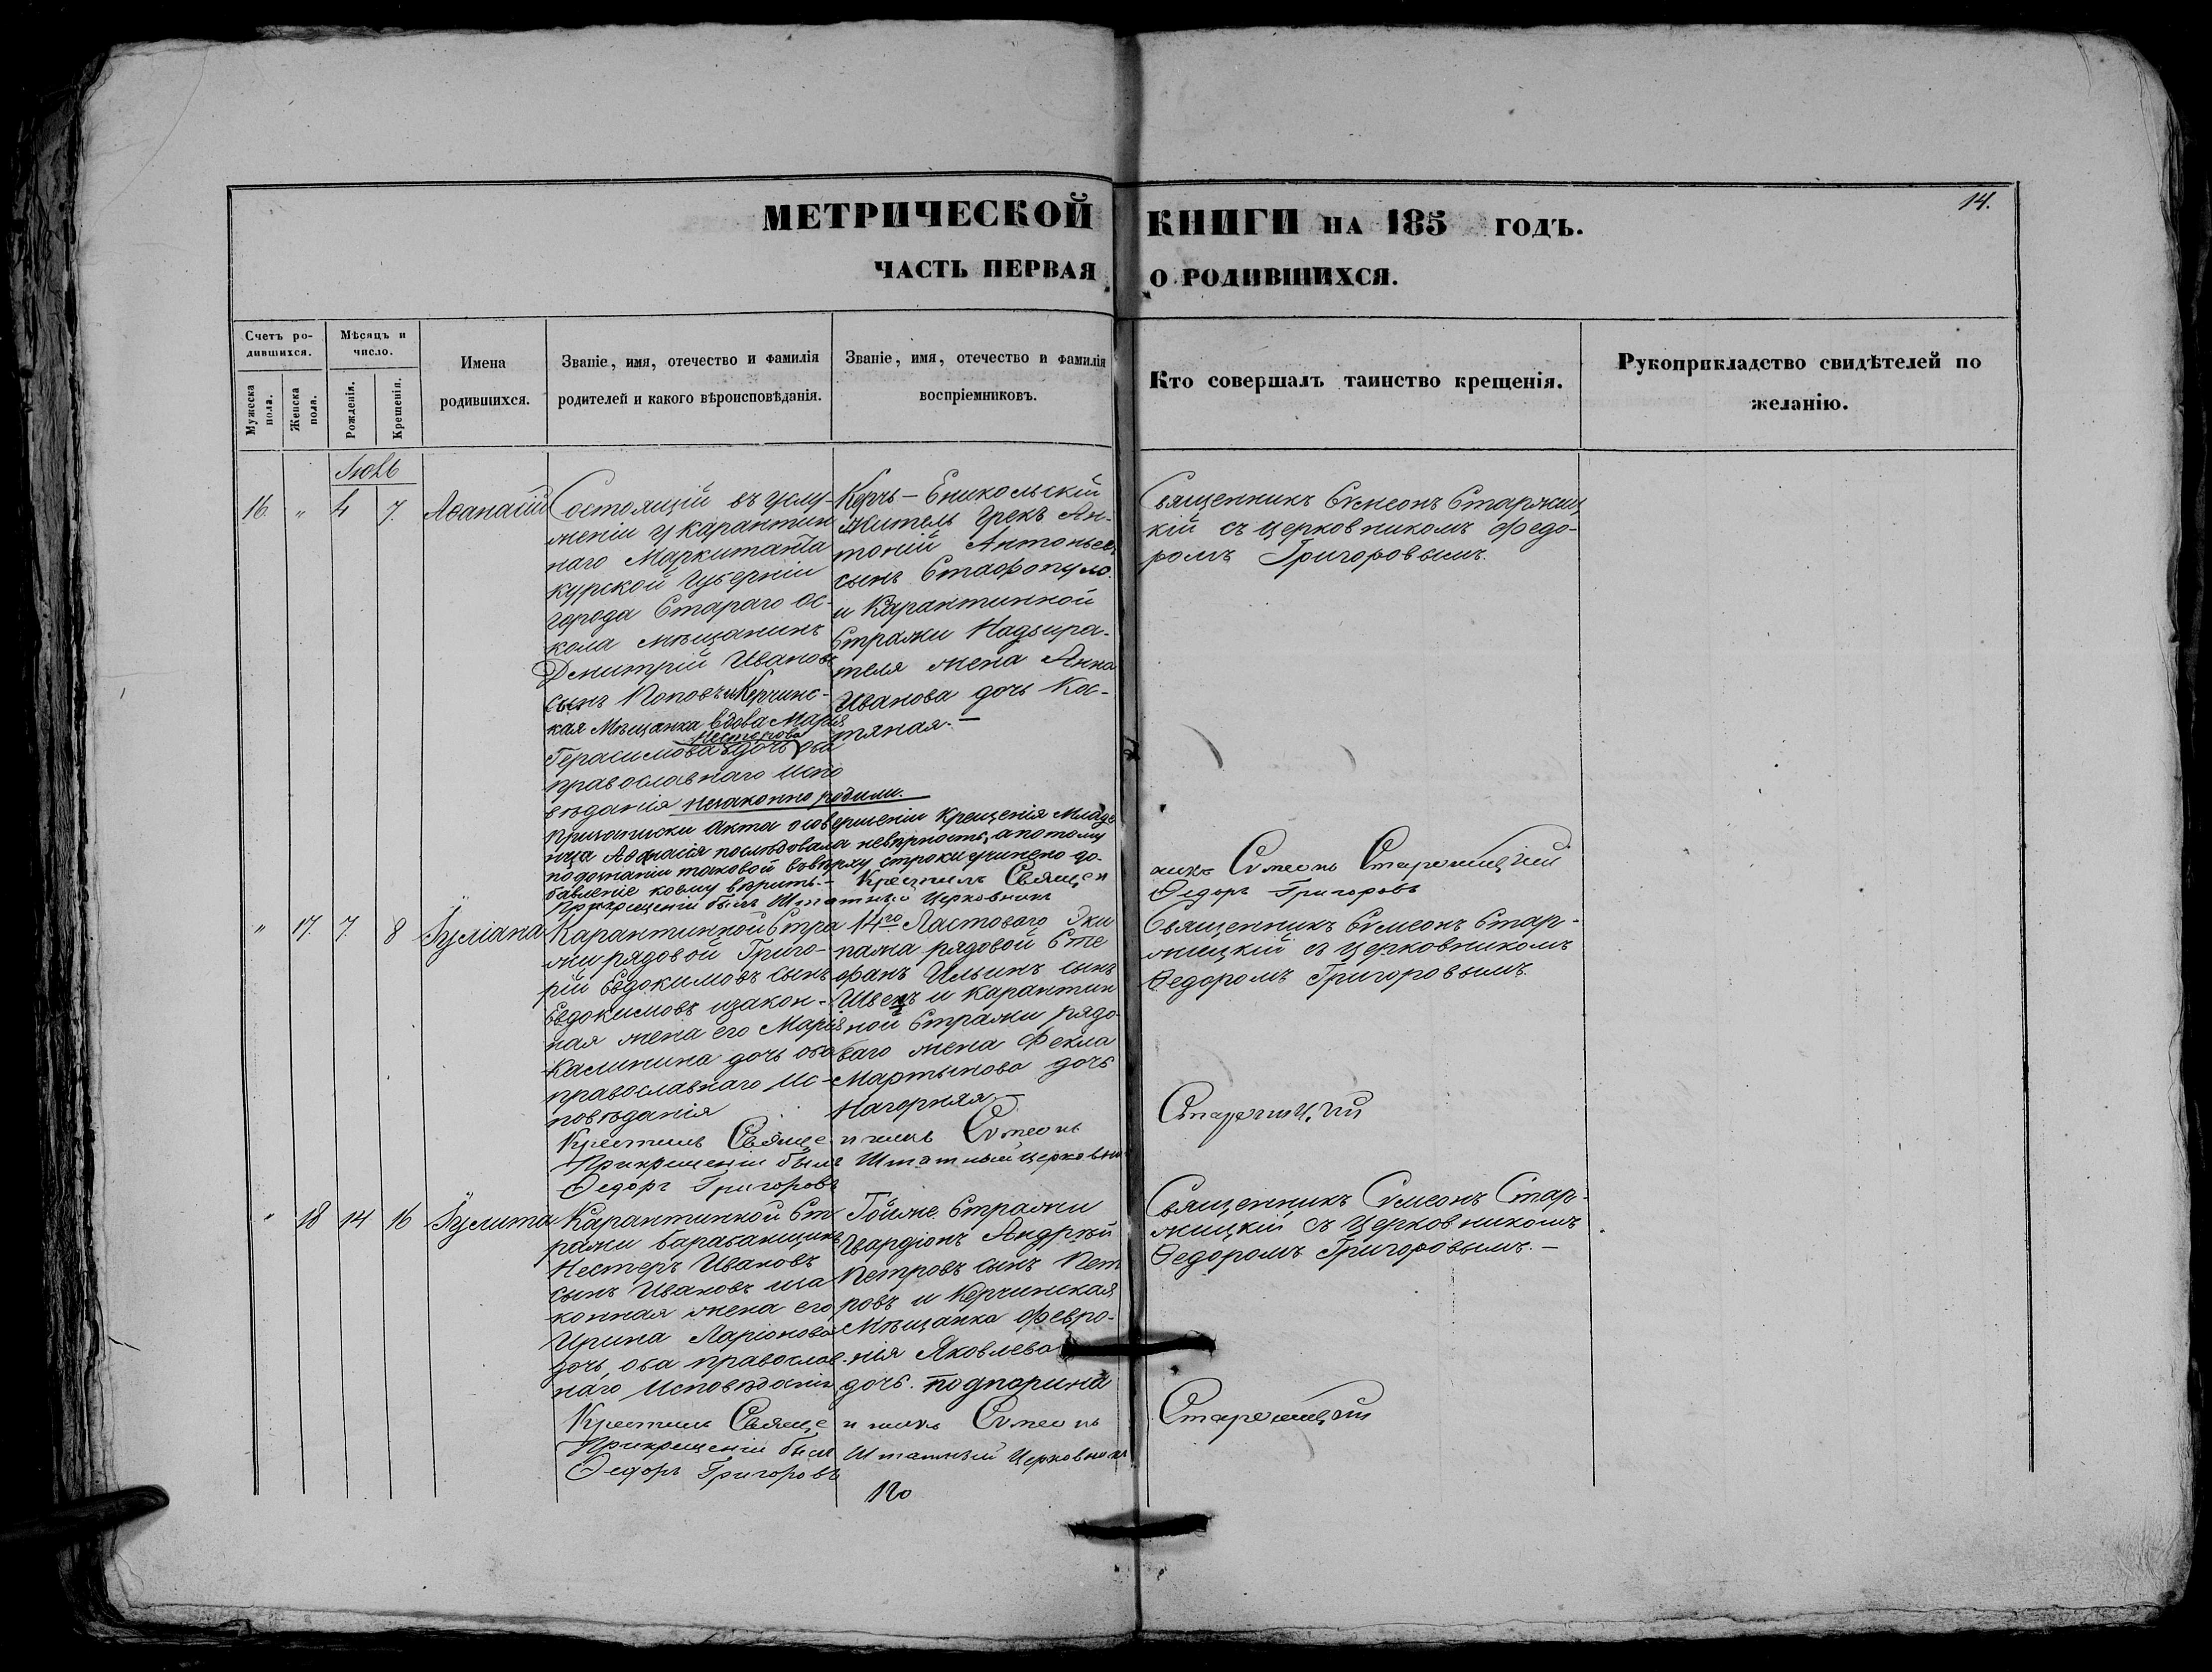 14.
МЕТРИЧЕСКОЙ КНИГИ НА 185 ГОДЪ.
ЧАСТЬ ПЕРВАЯ О РОДИВШИХСЯ.
Счетъ ро-
дившихся.
Мужеска пола.
Женска пола.
Мѣсяцъ и
число.
Рожденія.
Крещенія.
Имена
родившихся.
Званіе, имя, отечество и фамилія
родителей и какого вѣроисповѣданія.
Званіе, имя, отечество и фамилія
воспріемниковъ.
Кто совершалъ таинство крещенія.
Рукоприкладство свидѣтелей по
желанію.
Іюль
16. " 4 7. Аѳанасій
Состоящій въ услу-
женіи у карантин
наго Маркитанта
курской Губерніи
города Стараго Ос-
кола мѣщанинъ
Дмитрій Ивановъ
сынъ Поповъ и Керчинс-
кая Мѣщанка вдова Марія
Нестерова
Герасимова дочь оба
православнаго испо
вѣданія незаконно родили.
Керчь-Еникольскій
житель Грекъ Ан-
тоній Антоньевъ
сынъ Ставропуло.
и Карантинной
Стражи Надзира-
теля жена Анна
Иванова дочь Кос-
тяная.—
Священникъ Сѵмеонъ Стариц
кій съ церковникомъ Федо-
ромъ Григоровымъ.
При записки акта о совершеніи крещенія Младе
нца Аѳанасія послѣдовала невѣрность, а потому
въ верху строки учинено до-
бавленіе коему вѣрить.— Крестилъ Священ
никъ Сѵмеонъ Старожицкій
При крещеніи былъ Штатный Церковникъ
Ѳедоръ Григоровъ
" 17. 7. 8 Іуліана
Карантинной Стра
жи рядовой Григо-
рій Евдокимовъ сынъ
Евдокимовъ и закон-
ная жена его Марія
Калинина дочь оба
православнаго Ис-
повѣданія
14го Ластоваго Эки
пажа рядовой Сте
фанъ Ильинъ сынъ
Швецъ и Карантин
ной Стражи рядо
ваго жена Фекла
Мартынова дочь
Нагорняя—
Священникъ Сѵмеонъ Стар-
жицкій съ церковникомъ
Ѳедоромъ Григоровымъ.
Крестилъ Священникъ Сѵмеонъ Старожицкій
При крещеніи былъ Штатный церковни
Ѳедоръ Григоровъ
" 18 14 16 Іулита
Карантинной Ст
ражи барабанщикъ
Нестеръ Ивановъ
сынъ Ивановъ и за
конная жена его
Ирина Ларіонова
дочь, оба православ-
наго Исповѣданія
Той же Стражи
Гвардіонъ Андрѣй
Петровъ сынъ Пет
ровъ и Керчинская
Мѣщанка Февро-
нія Яковлева
дочь. Подпорина
Священникъ Сѵмеонъ Стар-
жицкій съ Церковникомъ
Ѳедоромъ Григоровымъ.—
Крестилъ Священникъ Сѵмеонъ Старожицкій
При крещеніи былъ Штатный Церковникъ
Ѳедоръ Григоровъ